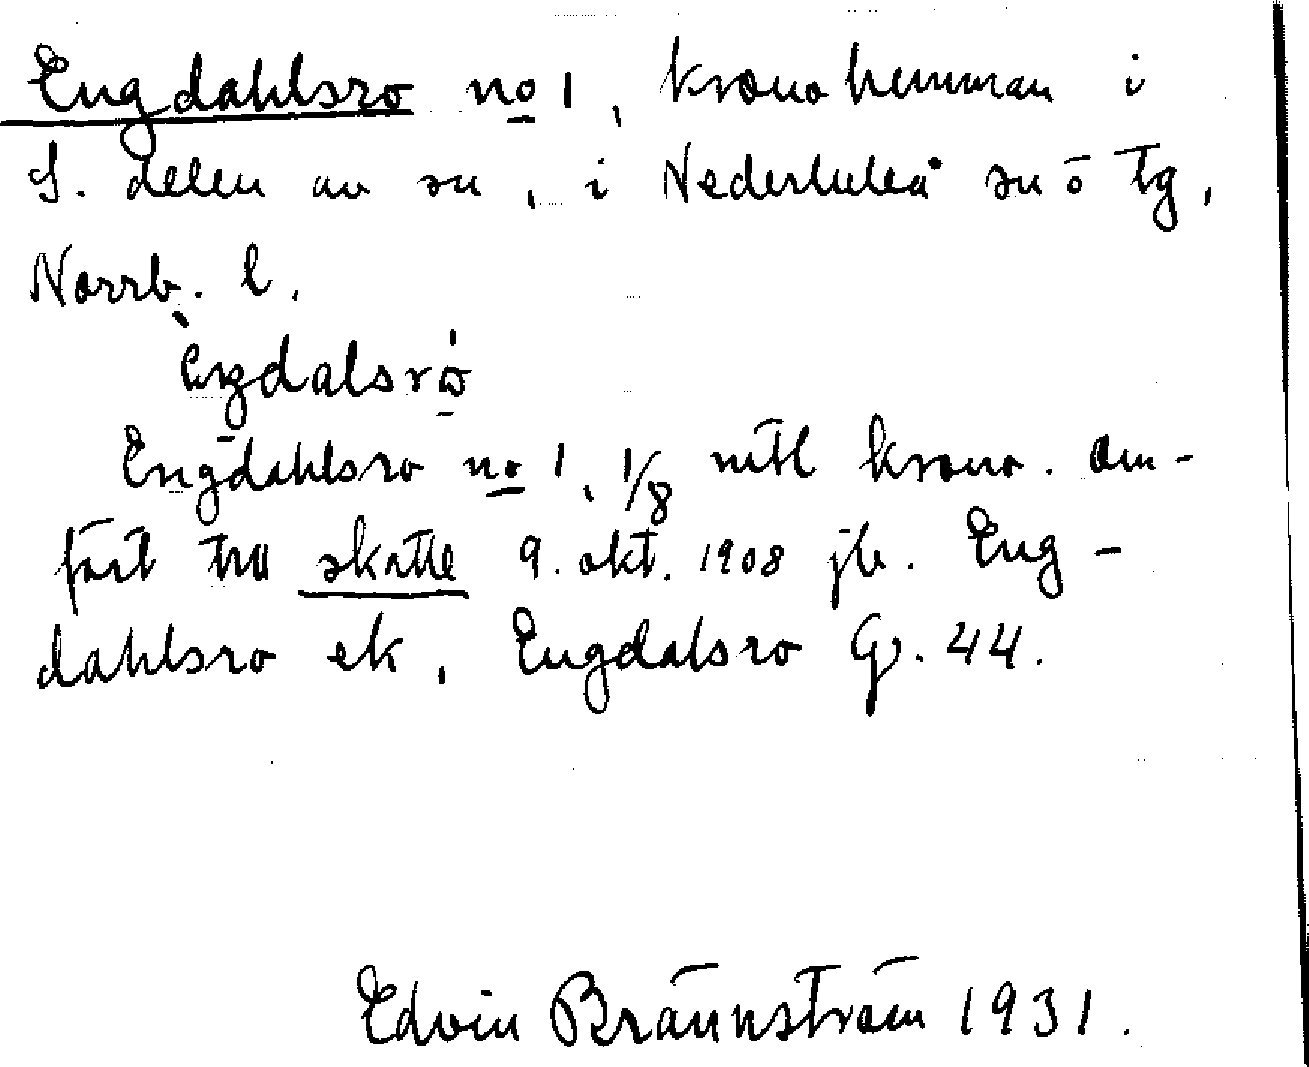 Engdahlsro no 1, kronohemman i
S. delen av sn, i Nederluleå sn ö tg,
Norrb. l.
èŋdalsró
Engdahlsro no 1, 1/8 mtl krono. Om-
fört till skatte 9. okt. 1908 jb. Eng-
dahlsro ek, Engdalsro GJ. 44.
Edvin Brännström 1931.